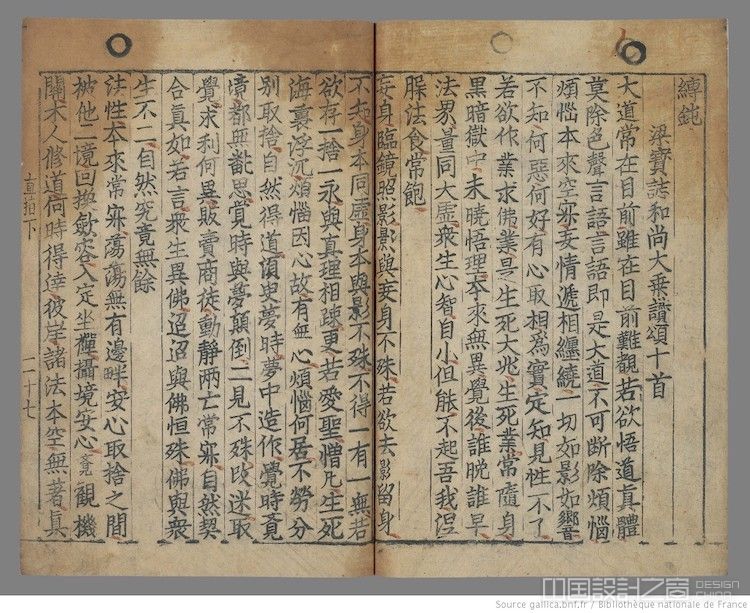 梁寶誌和尚大乗讃頌十首
大道常在目前雖在目前難覩若欲悟道真體
莫除色聲言語言語即是大道不可斷除煩惱
煩惱本來空寂妄情遞相纏繞一切如影如響
不知何惡何好有心取相為實定知見性不了
若欲作業求佛業是生死大兆生死業常隨身
黑暗獄中未曉悟理本來無異覺後誰晚誰早
法界量同大虛衆生心智自小但能不起吾我涅
槃法食常飽
妄身臨鏡照影影與妄身不殊若欲去影留身
不知身本同虛身本與影不殊不得一有一無若
欲存一捨一永與真理相踈更若愛聖憎凡生死
海裏浮沉煩惱因心故有無心煩惱何居不勞分
別取捨自然得道須臾夢時夢中造作覺時覺
境都無飜思覺時與夢顛倒二見不殊改迷取
覺求利何異販賣商徒動靜兩亡常寂自然契
合真如若言衆生異佛迢迢與佛恒殊佛與衆
生不二自然究竟無餘
法性本來常寂蕩蕩無有邊畔安心取捨之間
被他二境回換斂容入定坐禪攝境安心覺觀機
關木人修道何時得達彼岸諸法本空無著真
直指下 二十七
中国設計之窗 DESIGN CHINA
Source gallica.bnf.fr / Bibliothèque nationale de France